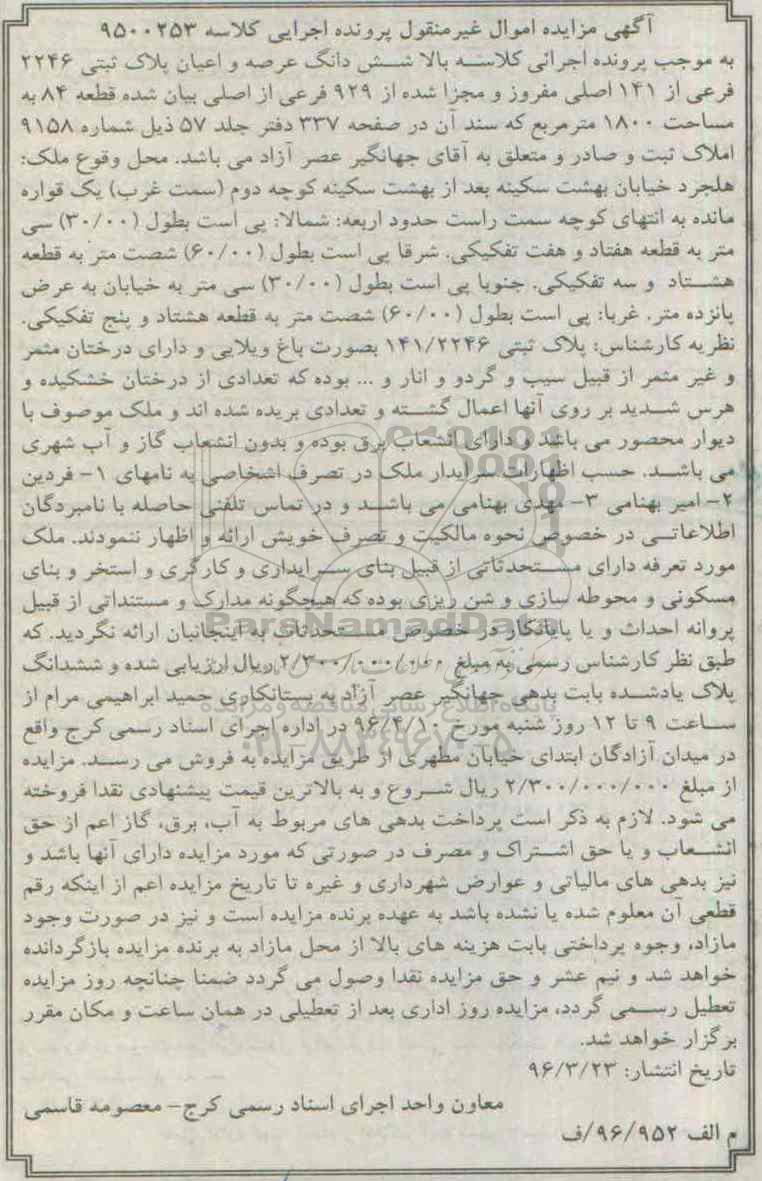 آگهی مزایده اموال غیرمنقول پرونده اجرایی کلاسه ۹۵۰۰۲۵۳
به موجب پرونده اجرائی کلاسه بالا شش دانگ عرصه و اعیان پلاک ثبتی ۲۲۴۶
فرعی از ۱۴۱ اصلی مفروز و مجزا شده از ۹۲۹ فرعی از اصلی بیان شده قطعه ۸۴ به
مساحت ۱۸۰۰ مترمربع که سند آن در صفحه ۳۳۷ دفتر جلد ۵۷ ذیل شماره ۹۱۵۸
املاک ثبت و صادر و متعلق به آقای جهانگیر عصر آزاد می باشد. محل وقوع ملک:
هلجرد خیابان بهشت سکینه بعد از بهشت سکینه کوچه دوم (سمت غرب) یک قواره
مانده به انتهای کوچه سمت راست حدود اربعه: شمالا: پی است بطول (۳۰/۰۰) سی
متر به قطعه هفتاد و هفت تفکیکی. شرقا پی است بطول (۶۰/۰۰) شصت متر به قطعه
هشتاد و سه تفکیکی. جنوبا پی است بطول (۳۰/۰۰) سی متر به خیابان به عرض
پانزده متر. غربا: پی است بطول (۶۰/۰۰) شصت متر به قطعه هشتاد و پنج تفکیکی.
نظریه کارشناس: پلاک ثبتی ۱۴۱/۲۲۴۶ بصورت باغ ویلایی و دارای درختان مثمر
و غیر مثمر از قبیل سیب و گردو و انار و ... بوده که تعدادی از درختان خشکیده و
هرس شدید بر روی آنها اعمال گشته و تعدادی بریده شده اند و ملک موصوف با
دیوار محصور می باشد و دارای انشعاب برق بوده و بدون انشعاب گاز و آب شهری
می باشد. حسب اظهارات سرایدار ملک در تصرف اشخاصی به نامهای ۱- فردین
۲- امیر بهنامی ۳- مهدی بهنامی می باشد و در تماس تلفنی حاصله با نامبردگان
اطلاعاتی در خصوص نحوه مالکیت و تصرف خویش ارائه و اظهار ننمودند. ملک
مورد تعرفه دارای مستحدثاتی از قبیل بنای سرایداری و کارگری و استخر و بنای
مسکونی و محوطه سازی و شن ریزی بوده که هیچگونه مدارک و مستنداتی از قبیل
پروانه احداث و یا پایانکار در خصوص مستحدثات به اینجانبان ارائه نگردید. که
طبق نظر کارشناس رسمی به مبلغ ۲/۳۰۰/۰۰۰/۰۰۰ ریال ارزیابی شده و ششدانگ
پلاک یادشده بابت بدهی جهانگیر عصر آزاد به بستانکاری حمید ابراهیمی مرام از
ساعت ۹ تا ۱۲ روز شنبه مورخ ۹۶/۴/۱۰ در اداره اجرای اسناد رسمی کرج واقع
در میدان آزادگان ابتدای خیابان مطهری از طریق مزایده به فروش می رسد. مزایده
از مبلغ ۲/۳۰۰/۰۰۰/۰۰۰ ریال شروع و به بالاترین قیمت پیشنهادی نقدا فروخته
می شود. لازم به ذکر است پرداخت بدهی های مربوط به آب، برق، گاز اعم از حق
انشعاب و یا حق اشتراک و مصرف در صورتی که مورد مزایده دارای آنها باشد و
نیز بدهی های مالیاتی و عوارض شهرداری و غیره تا تاریخ مزایده اعم از اینکه رقم
قطعی آن معلوم شده یا نشده باشد به عهده برنده مزایده است و نیز در صورت وجود
مازاد، وجوه پرداختی بابت هزینه های بالا از محل مازاد به برنده مزایده بازگردانده
خواهد شد و نیم عشر و حق مزایده نقدا وصول می گردد ضمنا چنانچه روز مزایده
تعطیل رسمی گردد، مزایده روز اداری بعد از تعطیلی در همان ساعت و مکان مقرر
برگزار خواهد شد.
تاریخ انتشار: ۹۶/۳/۲۳
معاون واحد اجرای اسناد رسمی کرج- معصومه قاسمی
م الف ۹۶/۹۵۲/ف
ParsNamadData
پایگاه اطلاع رسانی مناقصه و مزایده
۰۲۱-۸۸۳۴۹۶۷۰-۵